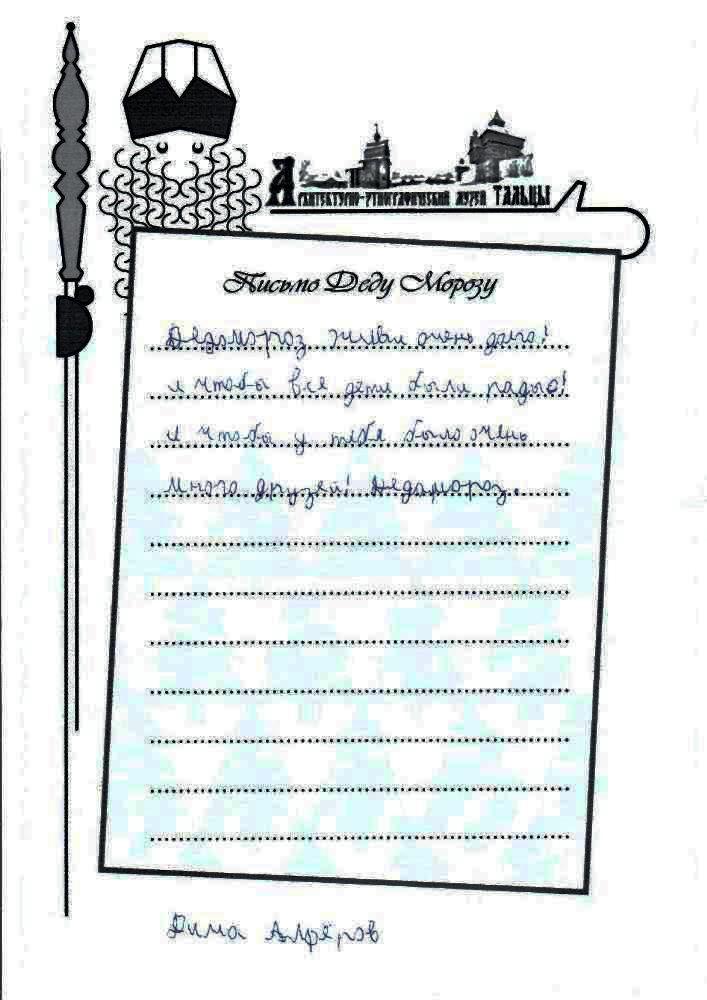 Архитектурно-этнографический музей ТАЛЬЦЫ
Письмо Деду Морозу
Дедамороз живи очень долго!
и чтобы все дети были рады!
и чтобы у тебя было очень
много друзей! Дедамороз.
Дима Алфёров